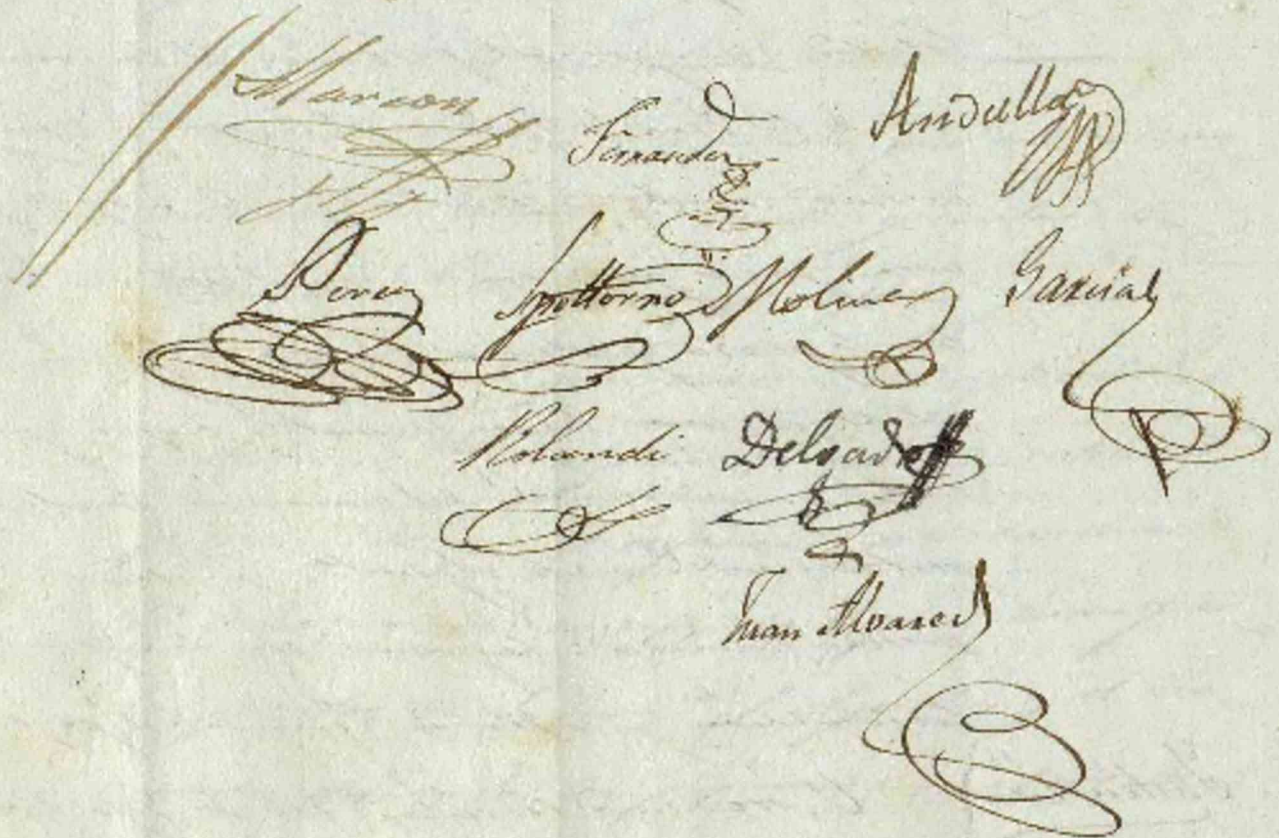 Marcon Fernandez Andulla
Perez Spottorno Molina Garcia
Rolandi Delgado
Juan Alvarez